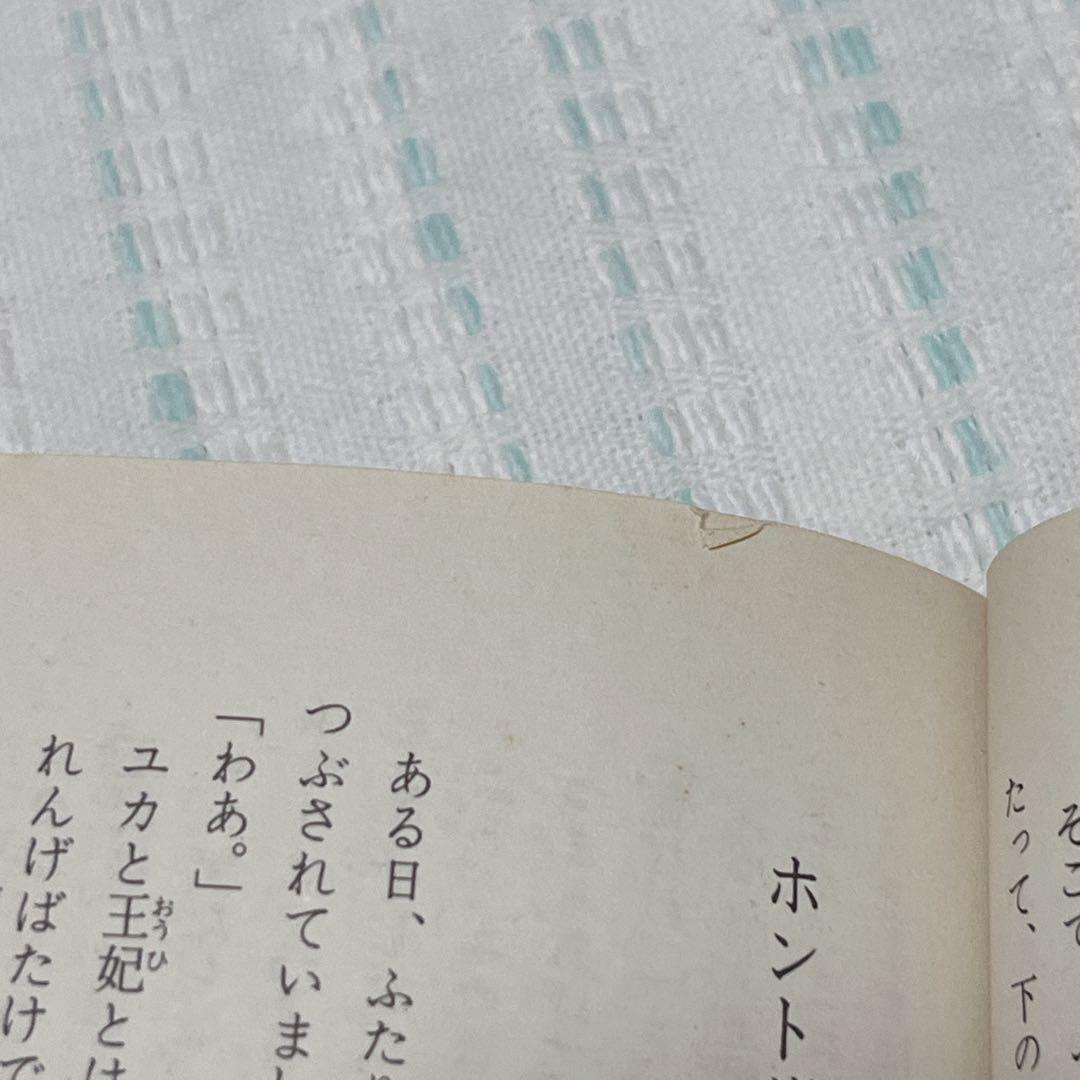 そこで
たって、下の
ホント
ある日、ふた
つぶされていまし
「わあ。」
ユカと王妃とは
おうひ
れんげばたけで